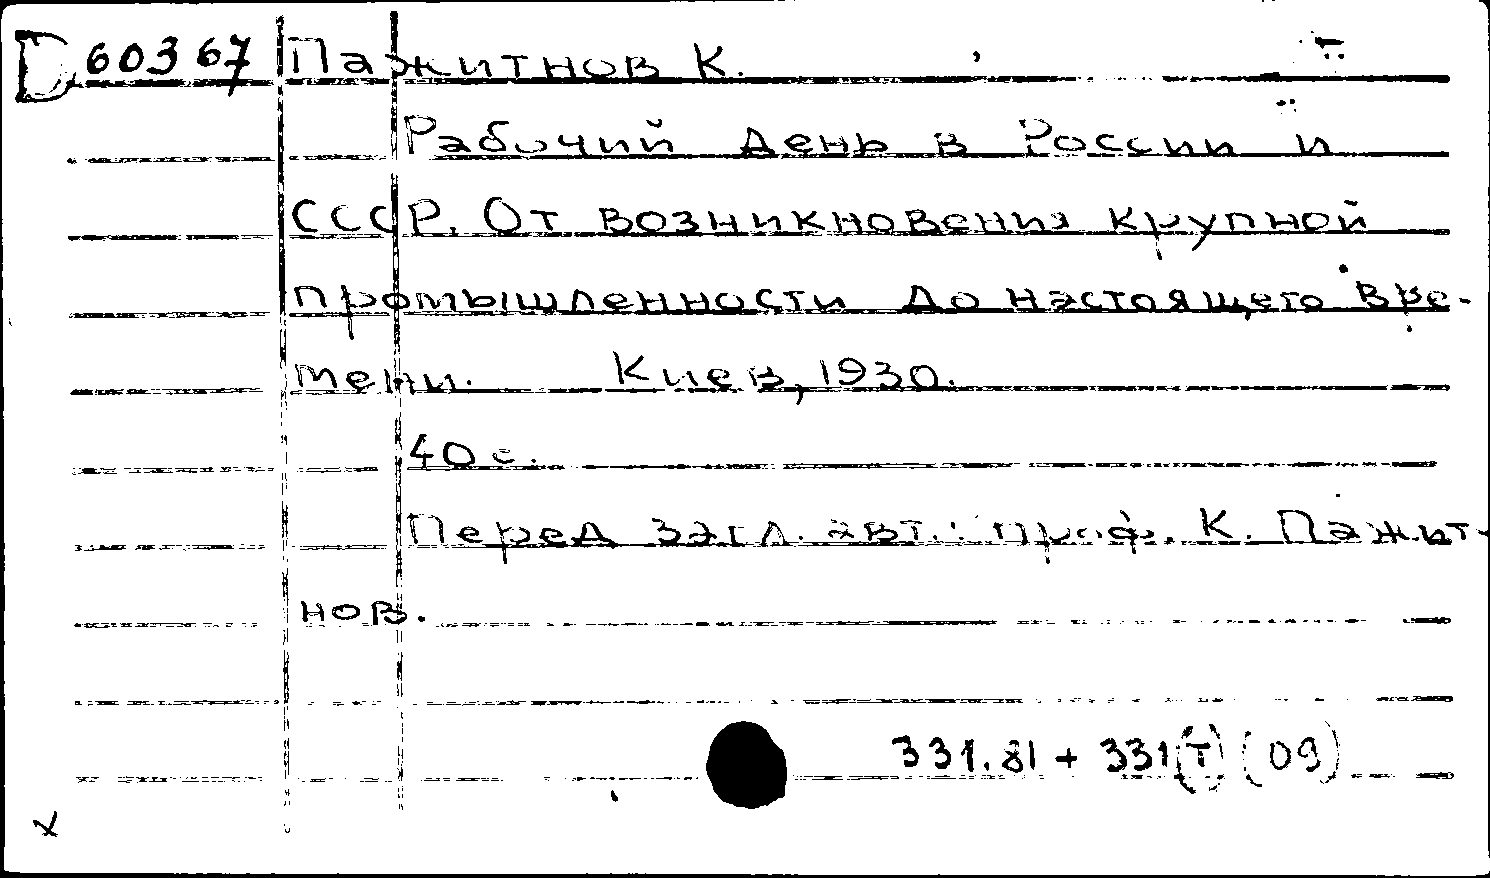 D 60367 Пажитнов К.
Рабочий день в России и
СССР. От возникновения крупной
промышленности до настоящего вре-
мени. Киев, 1930.
40 с.
Перед загл. авт.: проф. К. Пажит-
нов.
331.81 + 331(Т)(09)
x